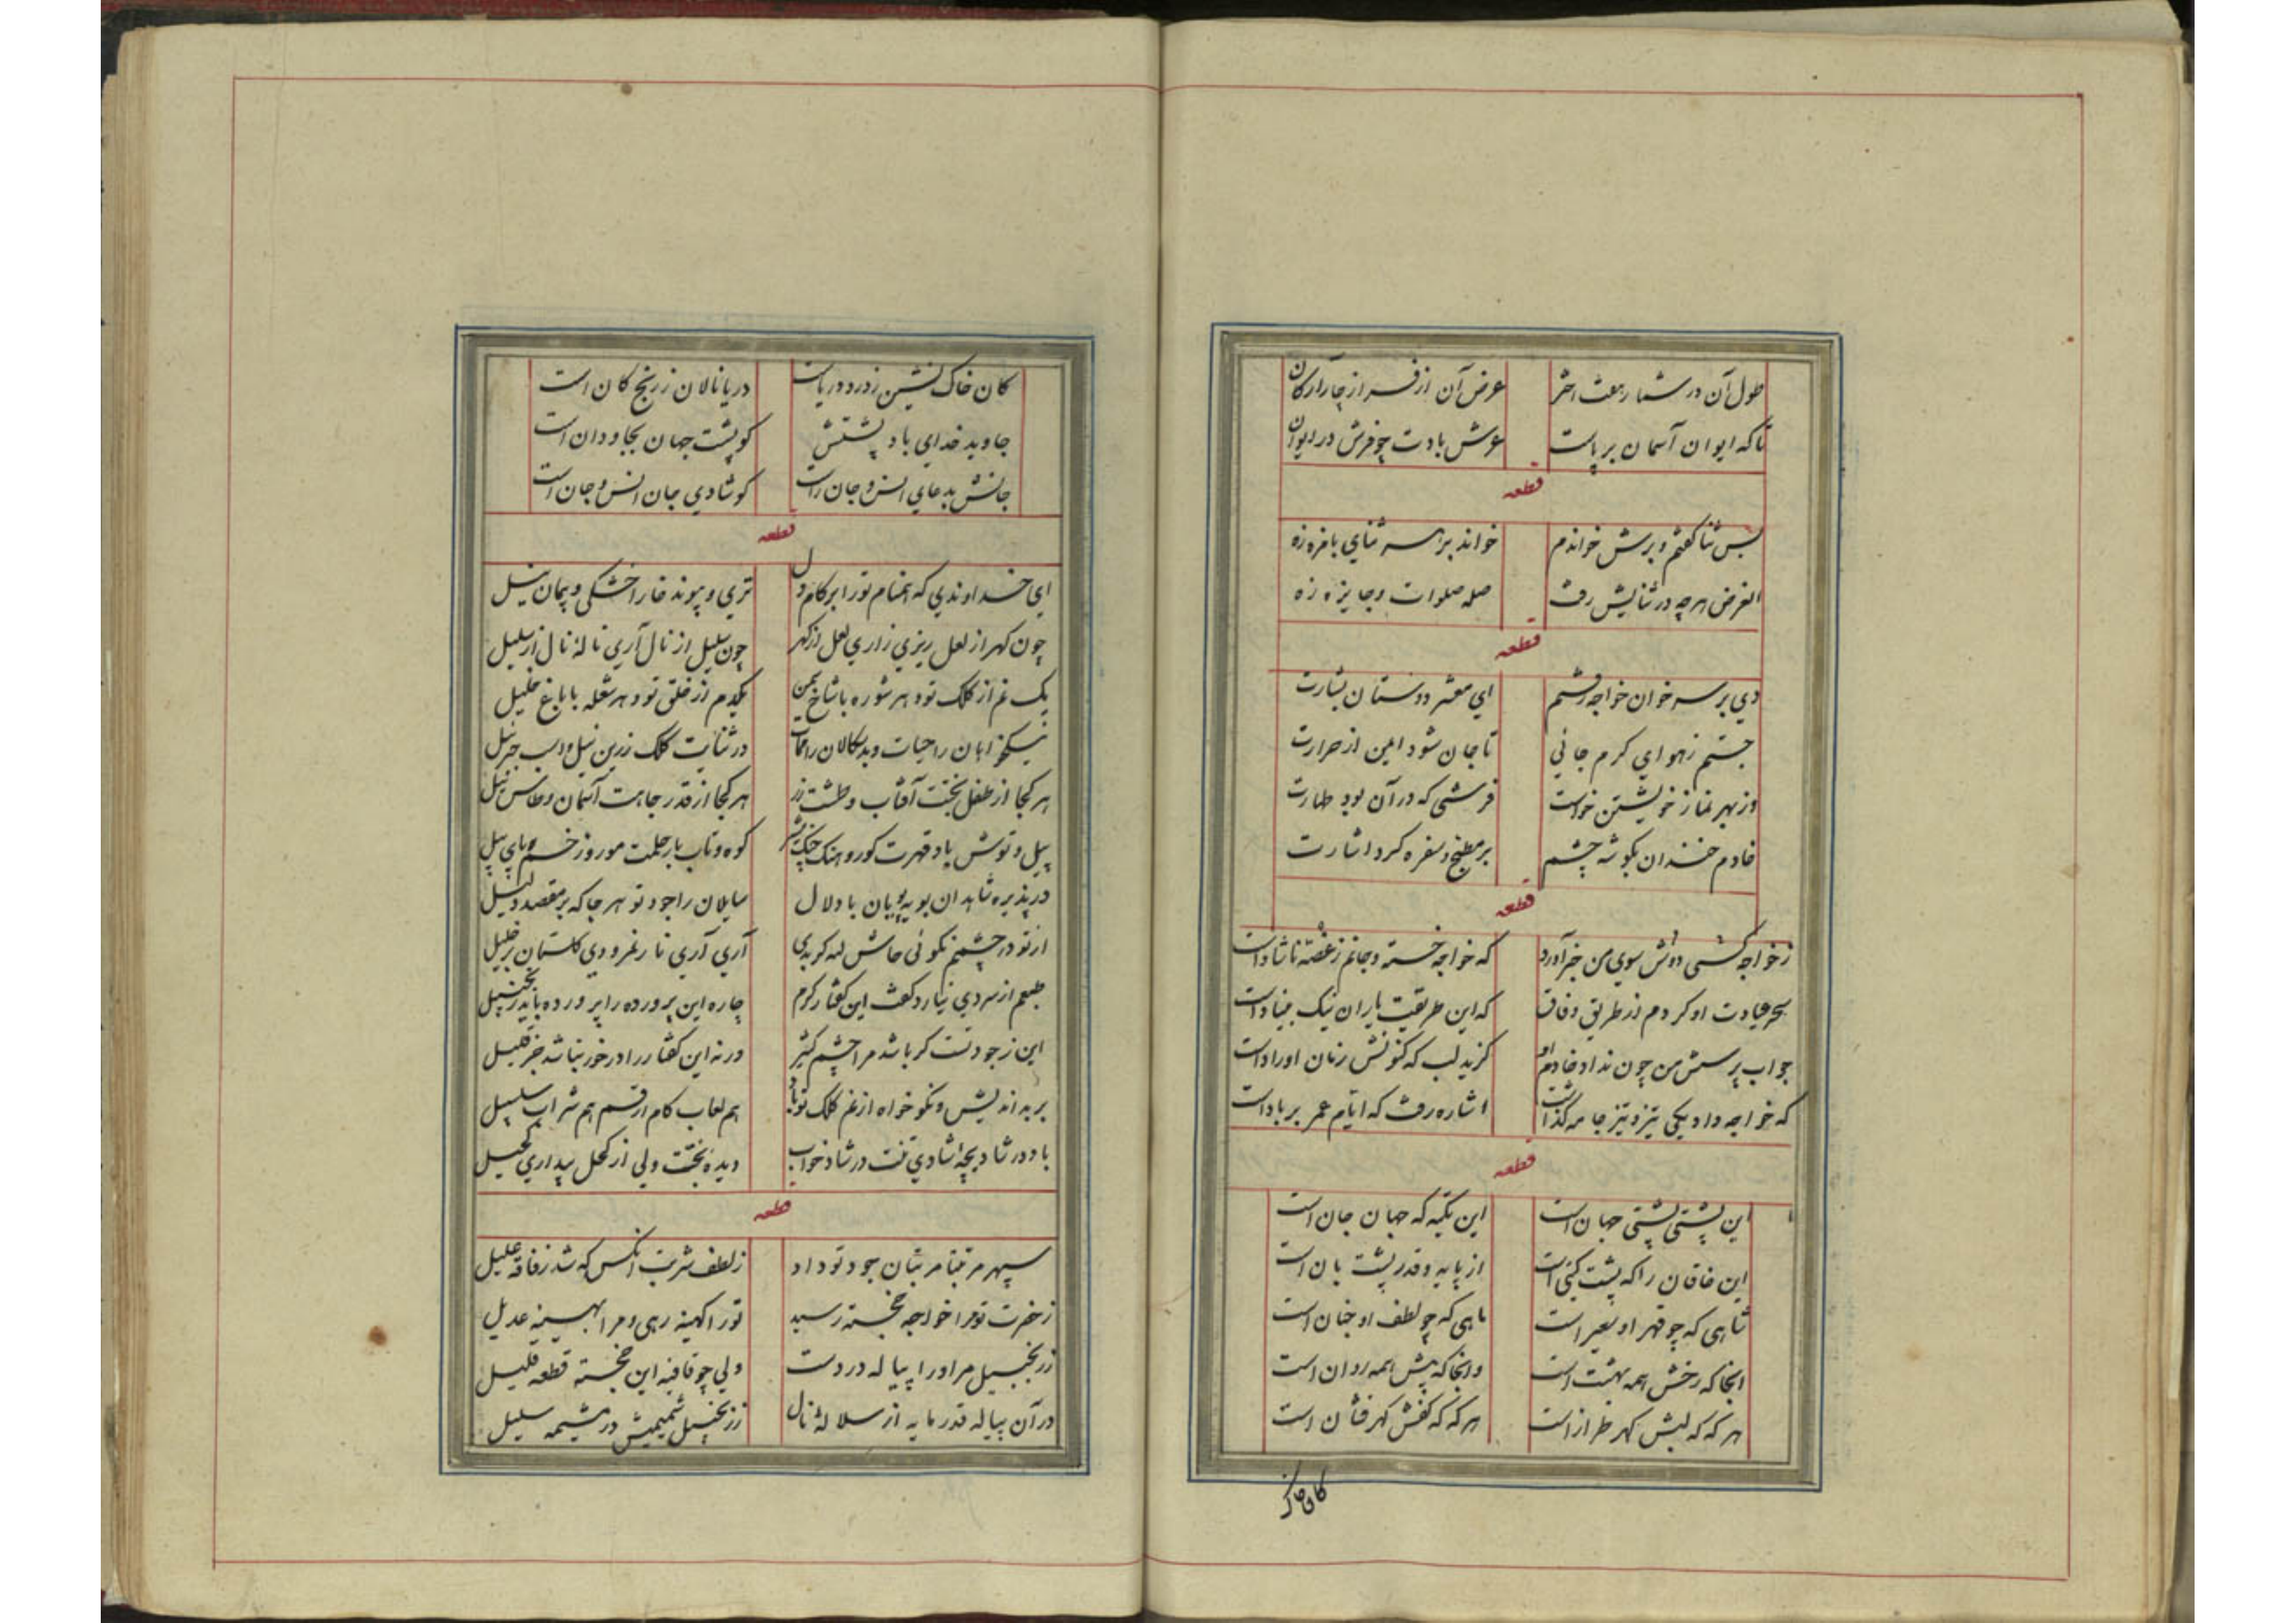 طول آن در شمار هفت اختر عرض آن از فسر از چار ارکان
تا که ایوان آسمان بر پاست عرش بادت چو فرش در ایوان
قطعه
بس ثنا گفتم و برش خواندم خواند بر سر ثنای بامزه زه
الغرض هر چه در ثنایش رفت صله صلوات و جایزه زه
قطعه
دی بر سر خوان خواجه رفتم ای معشر دوستان بشارت
جستم ز هوای کرم جائی تا جان شود ایمن از حرارت
وز بهر نماز خویشتن خواست فرشی که در آن بود طهارت
خادم خندان بگوشه چشم بر مطبخ و سفره کرد اشارت
قطعه
ز خواجه کسی دوش سوی من خبر آورد که خواجه خسته و جانم ز غصه ناشاد است
سحر عیادت او کردم از طریق وفاق که این طریقت یاران نیک بنیاد است
جواب پرسش من چون نداد خادم او گزید لب که کنونش زبان اوراد است
که خواجه داد یکی تیز و تیز جامه گذاشت اشاره رفت که ایام عمر بر باد است
قطعه
این پشتی پشتی جهان است این تکیه که جهان جان است
این خاقان را که پشت گیتی است از پایه و قدر پشت بان است
شاهی که چو قهر او سعیر است ماهی که چو لطف او جنان است
انجا که رخش همه بهشت است وانجا که پیش همه روان است
هر که که لبش کهر طراز است هر که که کفش کهر فشان است
کان خاک
کان خاک نشین ز درد دریاست دریا نالان ز رنج کان است
جاوید خدای باد پشتش کو پشت جهان جاودان است
جانش بدعای انس و جان راست کو شادی جان انس و جان است
قطعه
ای خداوندی که انعام تو را بر کام دل تری و پیوند خار خشکی و پیمان نیل
چون کهر از لعل ریزی زاری لعل از کهر چون سلیل از نال آری نالهٔ نال از سلیل
یک نم از کلک تو و هر شوره با شاخ یکدم از خلق تو و هر شعله با باغ خلیل
نیکخواهان را حیات و بدسکالان را ممات در ثنایت کلک زرین نیل و لب جبرئیل
هر کجا از طفل بختت آفتاب و طشت زر هر کجا از قدر جاهت آسمان و طاس نیل
پیل و توش باد قهرت کور و کوه و تاب بار حلمت مور و زخم پای پیل
در پذیره شاهدان بویه پویان با دلال سایلان را جود تو هر جا که بر مقصد دلیل
از تو در چشمم نکوئی حاش لله کو بدی آری آری نار نمرودی گلستان بر خلیل
طبعم از سردی نیارد گفت این گفتار گرم چاره این پرورده را پرورده باید زنجبیل
این ز جودتست گر باشد مرا چشم کثیر ورنه این گفتار را در خور نباشد جز قلیل
بر بداندیش و نکوخواه از نم کلک تو باد هم لعاب کام ارقم هم شراب سلسبیل
باد در شادیچه شادی تنت در شادخواب دیده بختت ولی از کحل بیداری کحیل
قطعه
سپهر مرتبتا مر بنان جود تو داد ز لطف شربت آنکس که شد ز فاقه علیل
ز حضرت تو مرا خواجه خجسته رسید تو را کهینه رهی و مرا بهینه عدیل
ز زنجبیل مر او را پیاله در دست ولی چو قافیه این خجسته قطعه قلیل
در آن پیاله قدر مایه از سلالهٔ نال ز زنجبیل شمیمیش در مشیمه سلیل